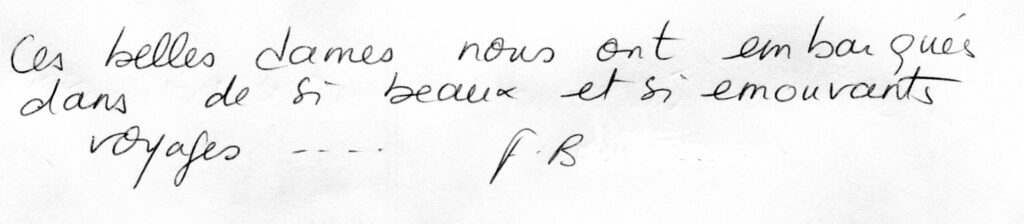 Ces belles dames nous ont embarqués
dans de si beaux et si emouvants
voyages ..... F.B